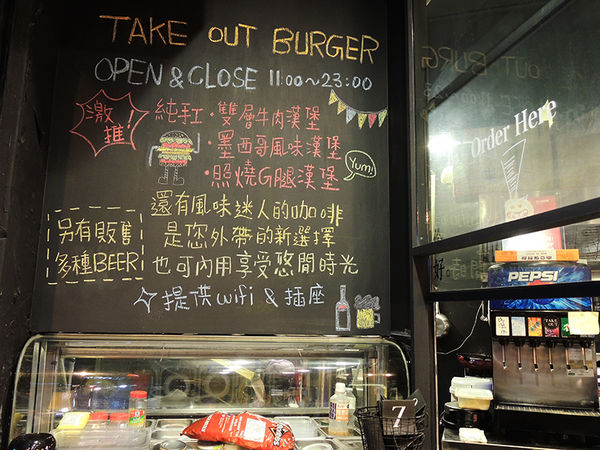 TAKE OUT BURGER
OPEN & CLOSE 11:00~23:00
激推!
純手工·雙層牛肉漢堡
·墨西哥風味漢堡
·照燒G腿漢堡
Yum!
還有風味迷人的咖啡
是您外帶的新選擇
也可內用享受悠閒時光
另有販售
多種BEER
提供wifi & 插座
Order Here
PEPSI
7